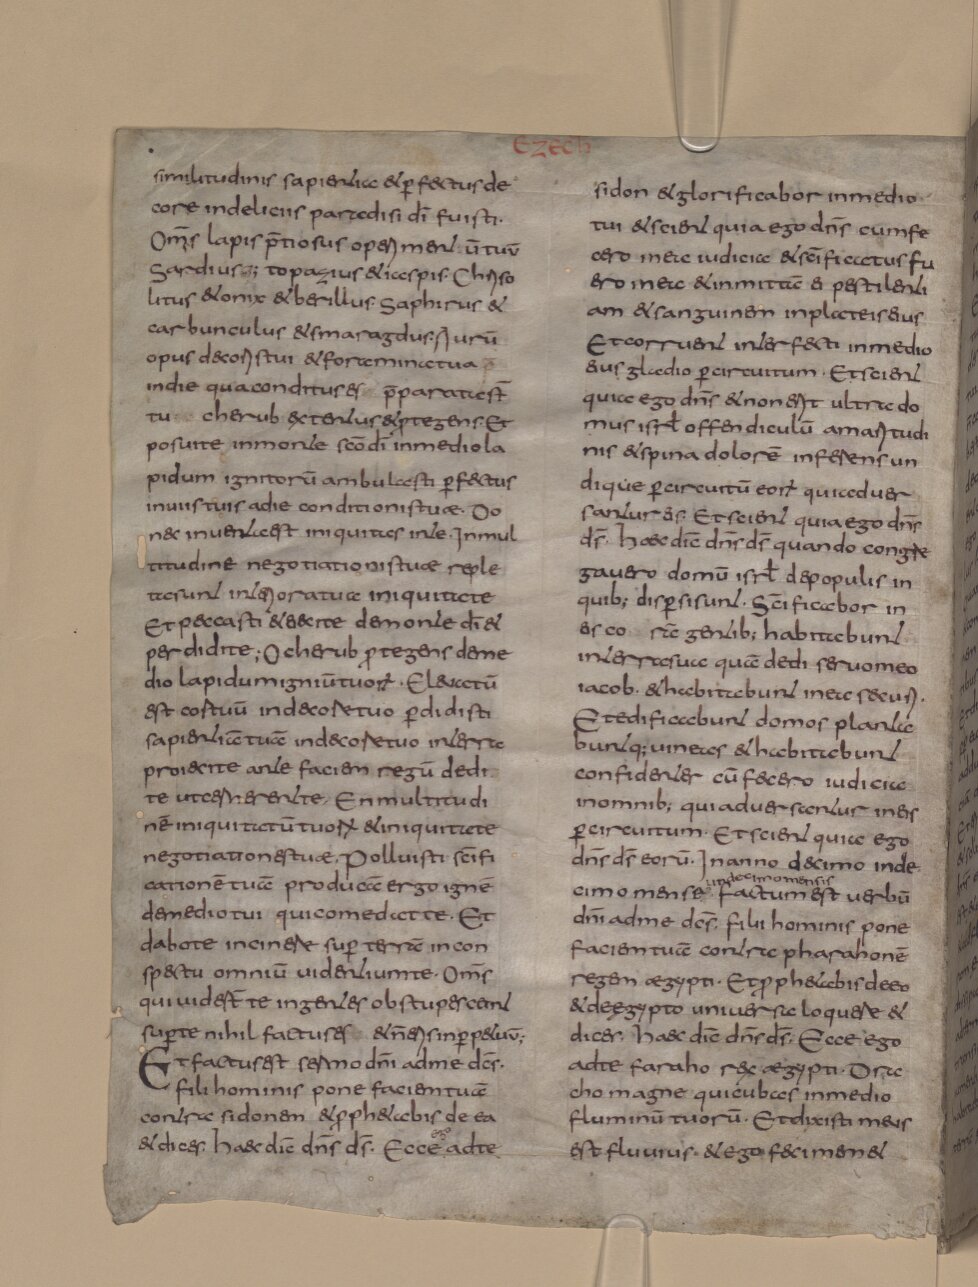 Ezech
similitudinis sapientiae & perfectus de
core indeliciis paradisi dī fuisti.
Om̄s lapis p̄tiosus operimen̄t ū tuū
Sardius; topazius & iaspis. Chryso
litus & onix & berillus. Saphirus &
carbunculus & smaragdus;
opus decoris tui & foramina tua
indie qua conditus es p̄parata sn̄t
tu cherub extentus & p̄tegens. Et
posui te inmonte scō dī inmedio la
pidum ignitorū ambulasti p̄fectus
inuiis tuis adie conditionis tuae. Do
nec inuenta est iniquitas inte. Inmul
titudine negotiationis tuae reple
ta sunt interiora tua iniquitate
Et peccasti & eieci te demonte dī &
perdidi te; O cherub p̄tegens deme
dio lapidum igniū tuorum. Eleuatū
est cor tuū indecore tuo p̄didisti
sapientiā tuā indecore tuo interra
proieci te ante faciem regū dedi
te ut cernerent te. Enmultitudi
nē iniquitatū tuorum & iniquitate
negotiationis tuae. Polluisti sc̄ifi
cationē tuā producā ergo ignē
demedio tui qui comedat te. Et
dabo te incinere sup̄ terrā in con
spectu omniū uidentium te. Om̄s
qui uiderint te ingentes obstupescent
sup̄ te nihil factus es & nēris inp̄petuū;
Et factus est sermo dn̄i adme dc̄s.
fili hominis pone faciem tuā
contra sidonem & p̄phetabis de ea
& dices. Haec dic̄ dn̄s ds̄. Ecce ego adte
sidon & glorificabor inmedio
tui & scient quia ego dn̄s cum fe
cero inea iudicia & sc̄ificatus fu
ero inea & inmittā ei pestilenti
am & sanguinem inplateis eius
Et corruent interfecti inmedio
eius gladio p̄ circuitum. Et scient
quia ego dn̄s & non erit ultra do
mus isrl̄ offendiculū amaritudi
nis & spina dolorē inferens un
dique p̄ circuitū eorum qui aduer
santur eis. Et scient quia ego dn̄s
ds̄. Haec dic̄ dn̄s ds̄ quando congre
gauero domū isrl̄ depopulis in
quib; disp̄si sunt. Sc̄ificabor in
eis co rā gentib; habitabunt
interra sua quā dedi seruo meo
iacob. & habitabunt inea securi.
Et edificabunt domos planta
buntq; uineas & habitabunt
confidenter cū fecero iudicia
inomnib; qui aduersantur in eis
p̄ circuitum. Et scient quia ego
dn̄s ds̄ eorū. In anno decimo inde
cimo mense undecimo mensis factum est uerbū
dn̄i adme dc̄s. fili hominis pone
faciem tuā contra pharahonē
regem ægypti. Et p̄phetabis deeo
& deegypto uniuersa loquere &
dices. Haec dic̄ dn̄s ds̄. Ecce ego
adte faraho rex ægypti. Dra
cho magne qui cubas inmedio
fluminū tuorū. Et dixisti meus
est fluuius. & ego feci mem&